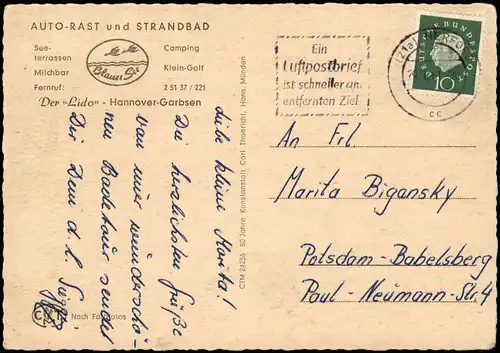 AUTO-RAST und STRANDBAD
See-
terrassen
Milchbar
Fernruf:
Blauer See
Camping
Klein-Golf
2 51 37 / 221
Der "Lido" - Hannover-Garbsen
Liebe kleine Marita!
Die herzlichsten Grüße
von einer wunderschö-
nen Badetour sendet
Dir Dein
Nach Farbfotos
CTM 24236 50 Jahre Kunstanstalt Carl Thoericht, Hann. Münden
Ein
Luftpostbrief
ist schneller am
entfernten Ziel
(21a) HERFORD
CC
DEUTSCHE BUNDESPOST
10
An Frl.
Marita Bigansky
Potsdam-Babelsberg
Paul-Neumann-Str. 4